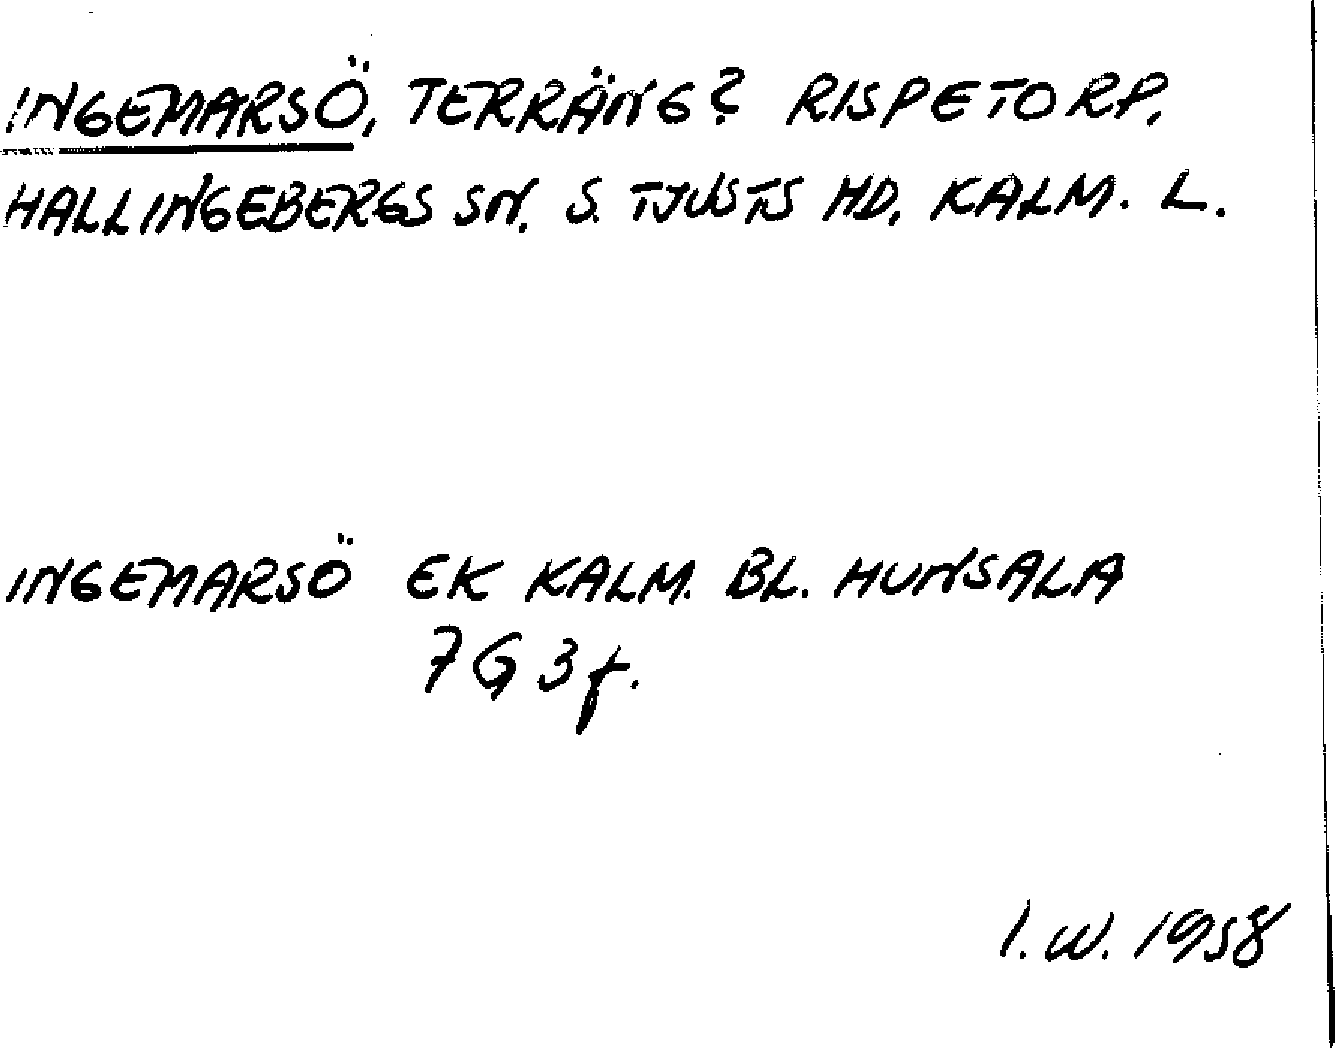 INGEMARSÖ, TERRÄNG? RISPETORP,
HALLINGEBERGS SN. S. TJUSTS HD. KALM. L.
INGEMARSÖ EK KALM. BL. HUNSALA
7G 3f.
I.W. 1958